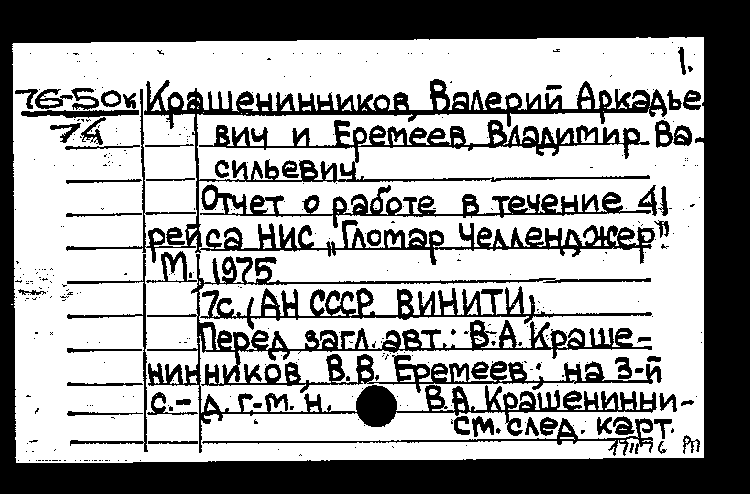 1.
76-50к Крашенинников, Валерий Аркадье-
74 вич и Еремеев, Владимир Ва-
сильевич.
Отчет о работе в течение 41
рейса НИС „Гломар Челленджер"
М., 1975.
7с. (АН СССР. ВИНИТИ)
Перед загл. авт.: В.А. Краше-
нинников, В.В. Еремеев; на 3-й
с.- д. г.-м. н. В.А. Крашенинни-
см. след. карт.